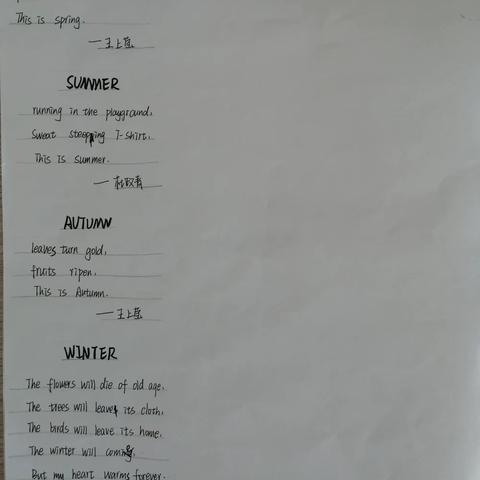 This is spring.
—王上
SUMMER
running in the playground,
Sweat steeping T-shirt,
This is summer.
—
AUTUMN
leaves turn gold,
fruits ripen,
This is Autumn.
—王上
WINTER
The flowers will die of old age,
The trees will leave its cloth,
The birds will leave its home,
The winter will coming,
But my heart warms forever.